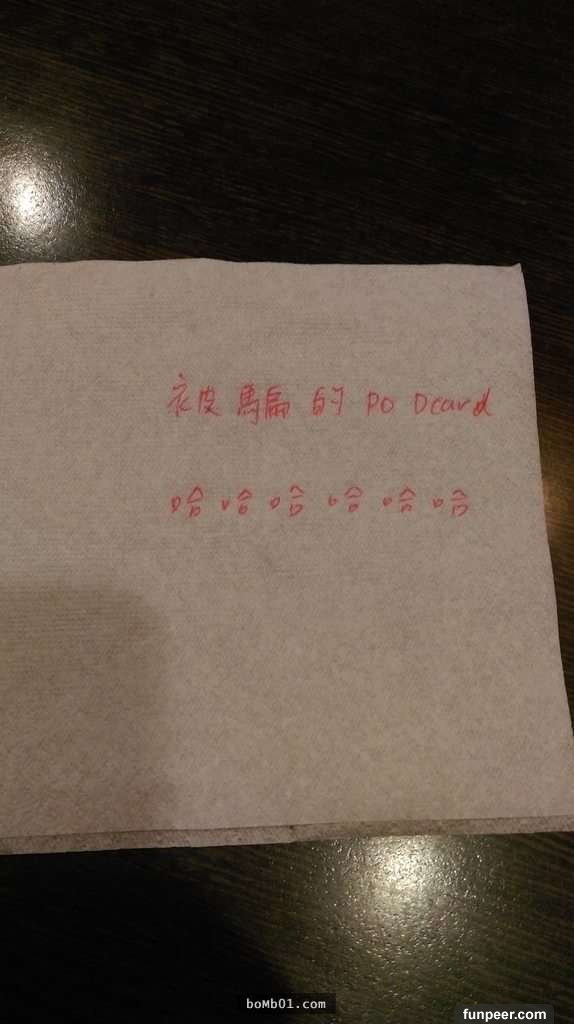 被騙的 PO Dcard
哈哈哈哈哈哈
boMb01.com
funpeer.com